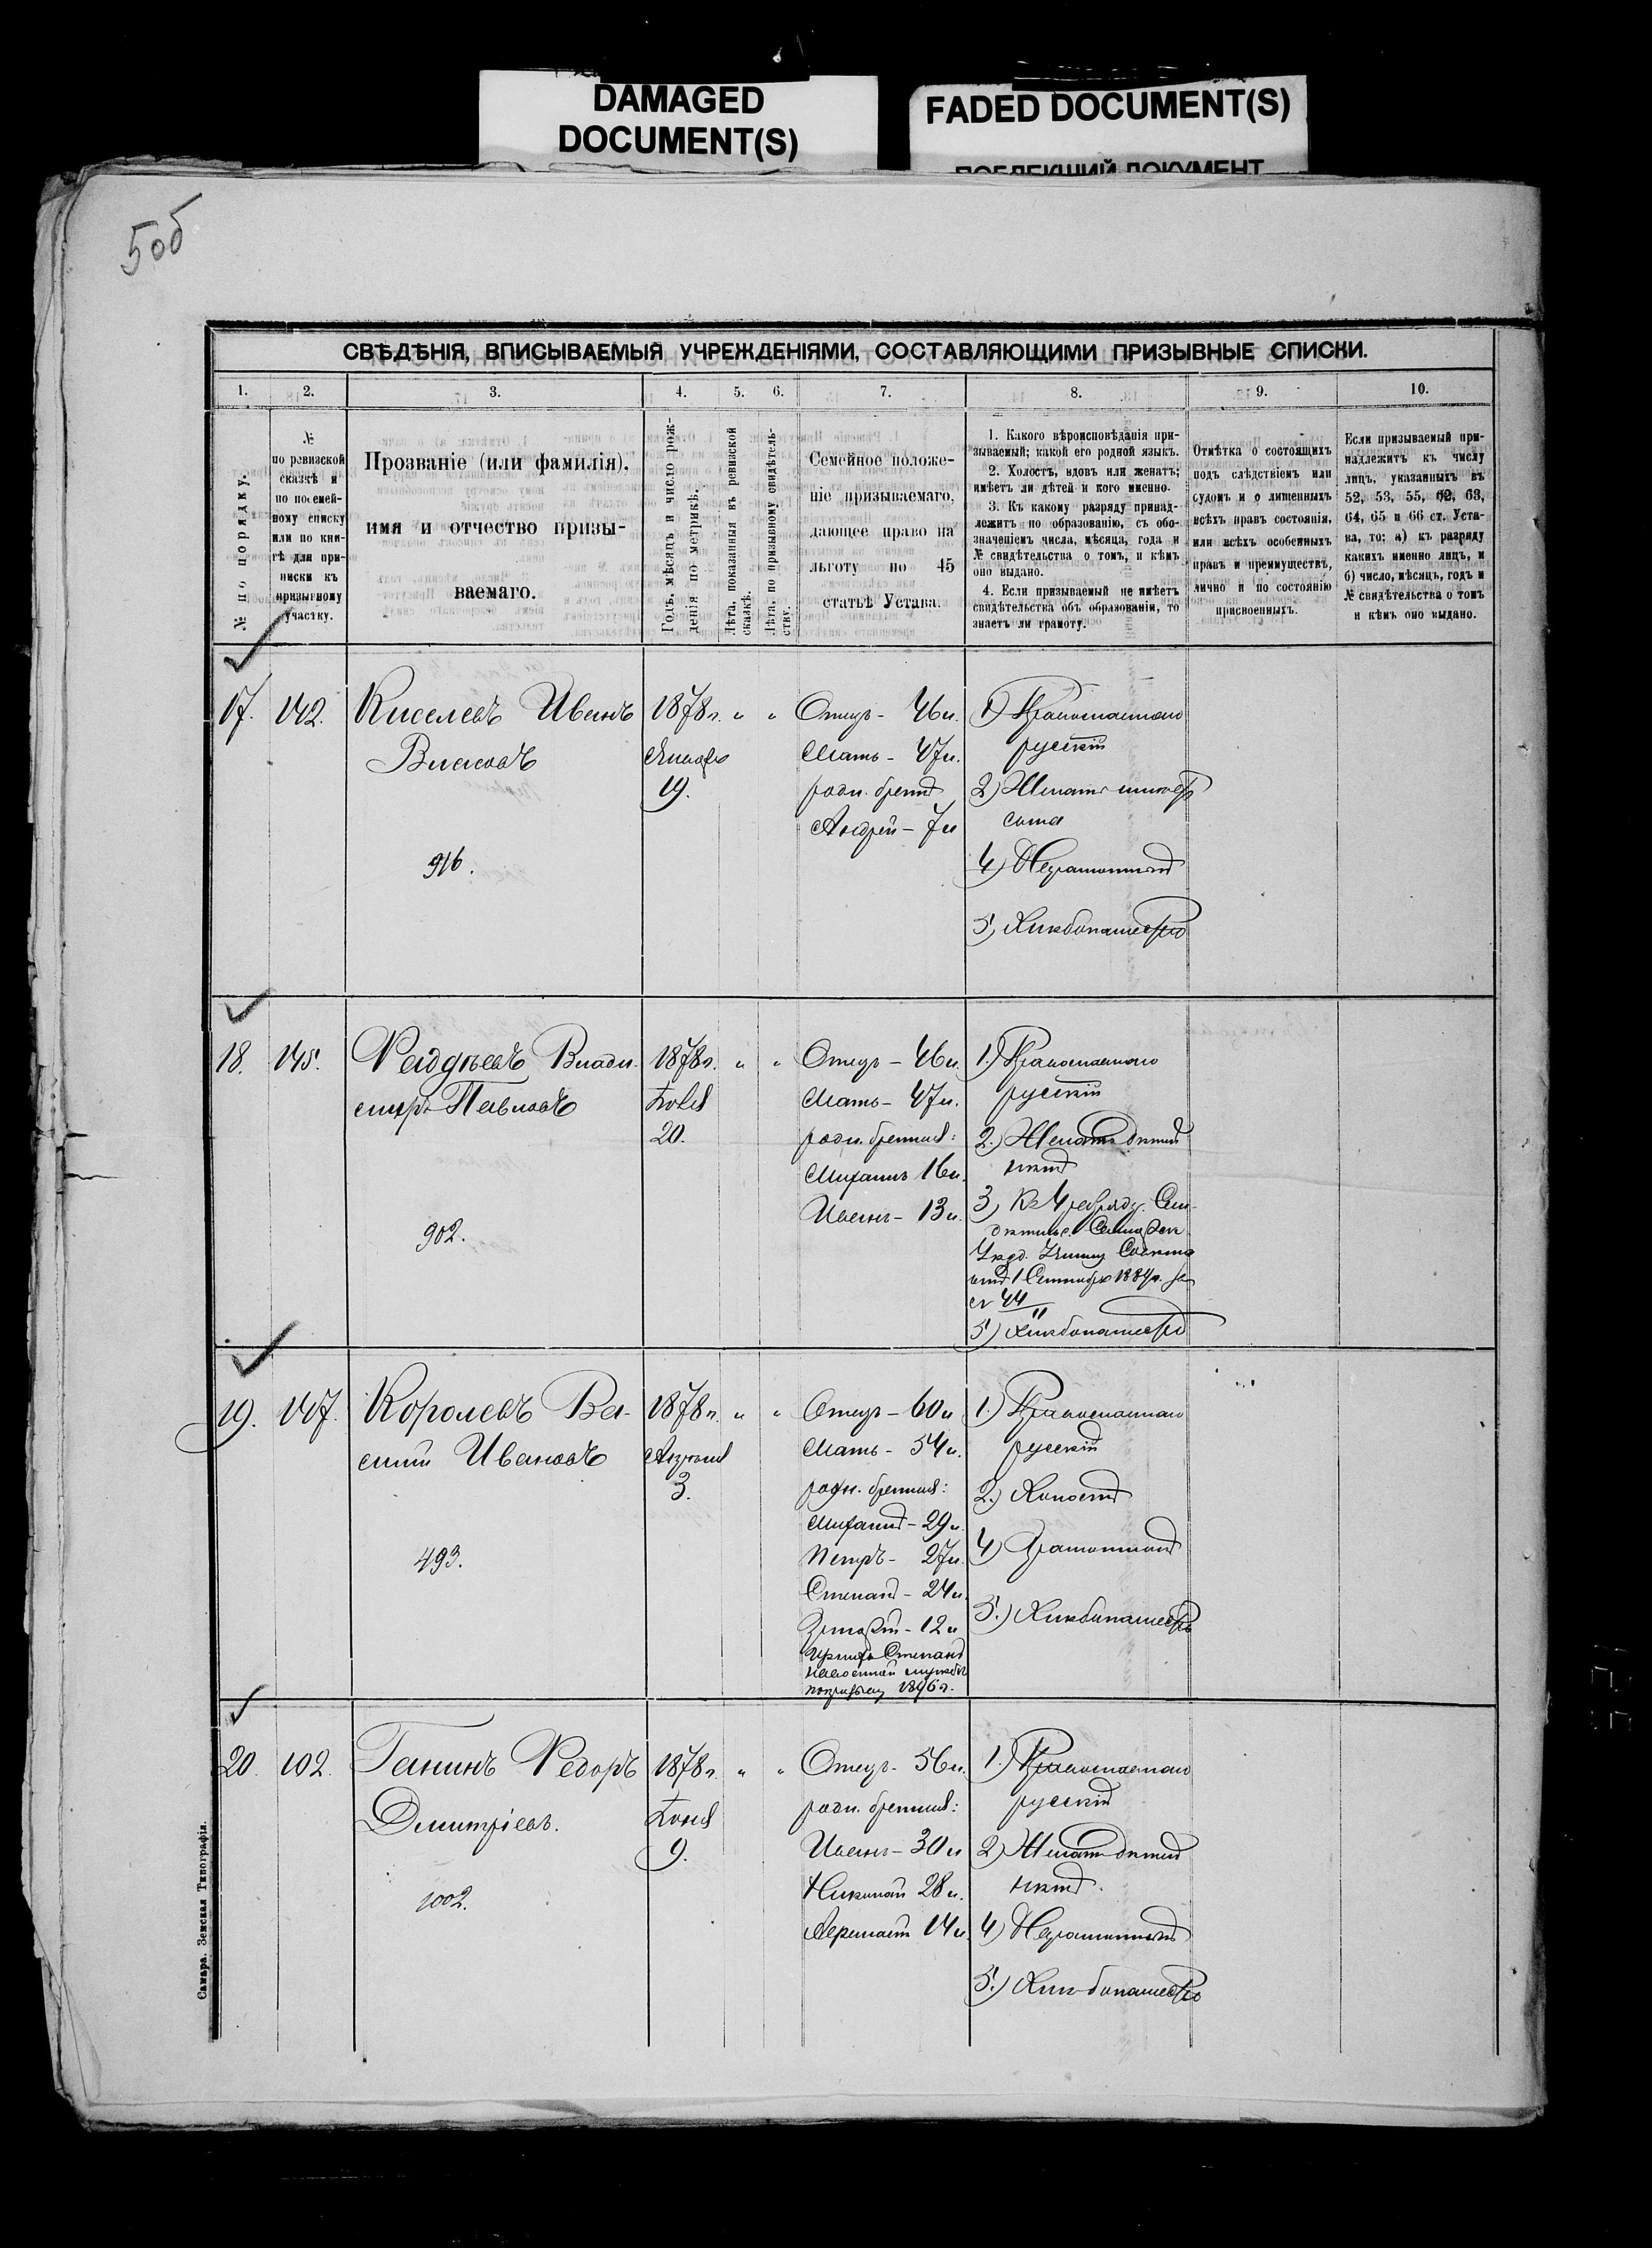 DAMAGED
DOCUMENT(S)
FADED DOCUMENT(S)
ПОБЛЕКШИЙ ДОКУМЕНТ
5об
СВѢДѢНІЯ, ВПИСЫВАЕМЫЯ УЧРЕЖДЕНІЯМИ, СОСТАВЛЯЮЩИМИ ПРИЗЫВНЫЕ СПИСКИ.
1. 2. 3. 4. 5. 6. 7. 8. 9. 10.
№ по порядку.
№
по ревизской
сказкѣ и
по посемей-
ному списку
или по кни-
гѣ для при-
писки къ
призывному
участку.
Прозваніе (или фамилія),
имя и отчество призы-
ваемаго.
Годъ, мѣсяцъ и число рож-
денія по метрикѣ.
Лѣта, показанныя въ ревизской
сказкѣ.
Лѣта, по призывному свидѣтель-
ству.
Семейное положе-
ніе призываемаго,
дающее право на
льготу по 45
статьѣ Устава.
1. Какого вѣроисповѣданія при-
зываемый; какой его родной языкъ.
2. Холостъ, вдовъ или женатъ;
имѣетъ ли дѣтей и кого именно.
3. Къ какому разряду принад-
лежитъ по образованію, съ обо-
значеніемъ числа, мѣсяца, года и
№ свидѣтельства о томъ, и кѣмъ
оно выдано.
4. Если призываемый не имѣетъ
свидѣтельства объ образованіи, то
знаетъ ли грамоту.
Отмѣтка о состоящихъ
подъ слѣдствіемъ или
судомъ и о лишенныхъ
всѣхъ правъ состоянія,
или всѣхъ особенныхъ
правъ и преимуществъ,
лично и по состоянію
присвоенныхъ.
Если призываемый при-
надлежитъ къ числу
лицъ, указанныхъ въ
52, 53, 55, 62, 63,
64, 65 и 66 ст. Уста-
ва, то: а) къ разряду
какихъ именно лицъ, и
б) число, мѣсяцъ, годъ и
№ свидѣтельства о томъ
и кѣмъ оно выдано.
17. 142. Киселевъ Иванъ
Власовъ
916.
1878 г. " "
Января
19.
Отецъ - 46 л.
Мать - 47 л.
родн. братъ
Андрей - 7 л
1) Православнаго
русскій
2) Женатъ имѣетъ
сына
4) Неграмотный
5) Хлѣбопашество
18. 145. Фаддѣевъ Влади-
миръ Павловъ
902.
1878 г. " "
Іюля
20.
Отецъ - 46 л.
Мать - 47 л.
родн. братья:
Михаилъ 16 л.
Иванъ - 13 л.
1.) Православнаго
русскій
2.) Женатъ дѣтей
нѣтъ
3) Къ 4 разряду. Сви-
дѣтельс.
Уѣзд. Училищ Совѣта
1 Сентября за
№ 44
5) Хлѣбопашество
19. 147. Королевъ Ва-
силій Ивановъ
493.
1878 г. " "
Апрѣля
3.
Отецъ - 60 л
Мать - 54 л.
родн. братья:
Михаилъ - 29 л.
Петръ - 27 л.
Степанъ - 24 л.
12 л
Степанъ
на военной службѣ
по призыву 1896 г.
1.) Православнаго
русскій
2.) Холостъ
4) Грамотный
5.) Хлѣбопашество
20. 102. Ганинъ Федоръ
Дмитріевъ.
1002.
1878 г. " "
Іюня
9.
Отецъ - 56 л.
родн. братья:
Иванъ - 30 л
Николай 28 л.
14 л.
1.) Православнаго
русскій
2) Женатъ дѣтей
нѣтъ.
4) Неграмотный
5.) Хлѣбопашество
Самара. Земская Типографія.